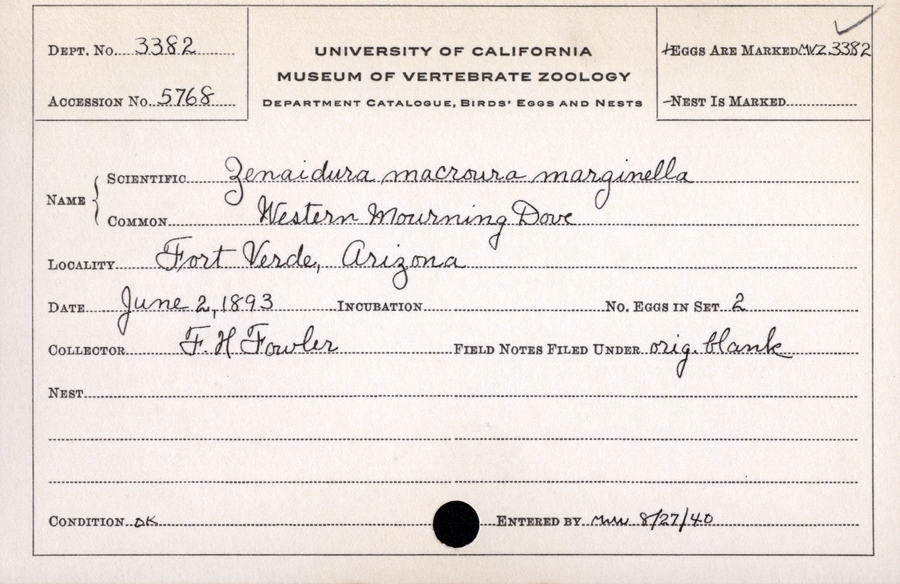 DEPT. NO. 3382
ACCESSION NO. 5768
UNIVERSITY OF CALIFORNIA
MUSEUM OF VERTEBRATE ZOOLOGY
DEPARTMENT CATALOGUE, BIRDS' EGGS AND NESTS
+EGGS ARE MARKED MVZ 3382
-NEST IS MARKED
NAME
SCIENTIFIC Zenaidura macroura marginella
COMMON Western Mourning Dove
LOCALITY Fort Verde, Arizona
DATE June 2, 1893 INCUBATION NO. EGGS IN SET 2
COLLECTOR F. H. Fowler FIELD NOTES FILED UNDER orig. blank
NEST
CONDITION OK ENTERED BY 8/27/40